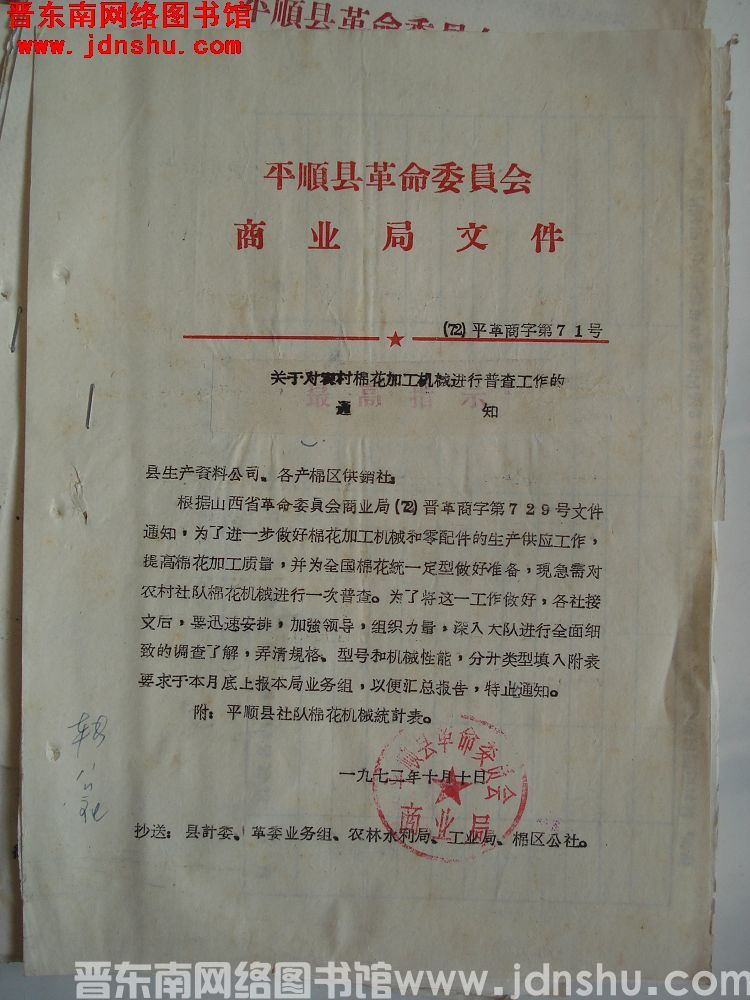 晋东南网络图书馆
www.jdnshu.com
平順县革命委員会
商业局文件
(72)平革商字第71号
关于对农村棉花加工机械进行普查工作的
最高指示
通知
县生产資料公司、各产棉区供銷社：
根据山西省革命委員会商业局(72)晋革商字第729号文件
通知，为了进一步做好棉花加工机械和零配件的生产供应工作，
提高棉花加工质量，并为全国棉花統一定型做好准备，現急需对
农村社队棉花机械进行一次普查。为了将这一工作做好，各社接
文后，要迅速安排，加強領导，组织力量，深入大队进行全面細
致的調查了解，弄清規格、型号和机械性能，分开类型填入附表
要求于本月底上报本局业务组，以便汇总报告，特此通知。
附：平順县社队棉花机械統計表。
一九七二年十月十日
平順县革命委員会
商业局
抄送：县計委、革委业务组、农林水利局、工业局、棉区公社。
晋东南网络图书馆www.jdnshu.com